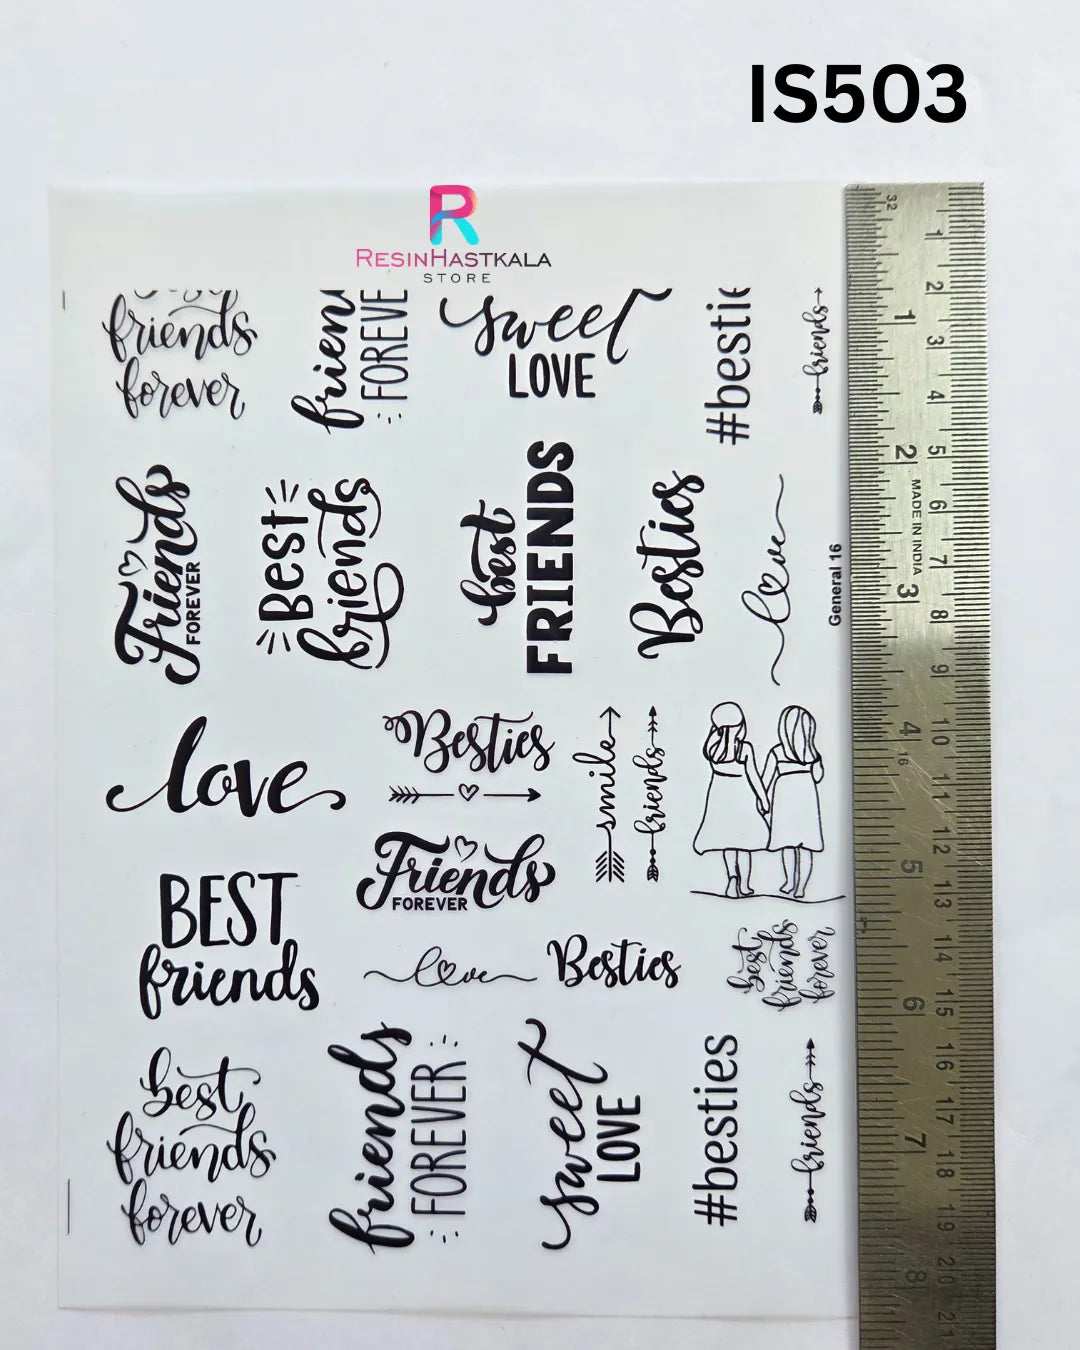 IS503
R
RESINHASTKALA
STORE
friends
forever
friend
FOREVE
sweet
LOVE
#bestie
friends
Friends
FOREVER
Best
friends
best
FRIENDS
Besties
love
General 16
love
Besties
smile
friends
Friends
FOREVER
BEST
friends
love
Besties
best
friends
forever
best
friends
forever
friends
FOREVER
sweet
LOVE
#besties
friends
32
1
2
3
4
5
6
7
8
9
10
11
12
13
14
15
16
17
18
19
20
1
2
MADE IN INDIA
3
4
16
5
6
7
8